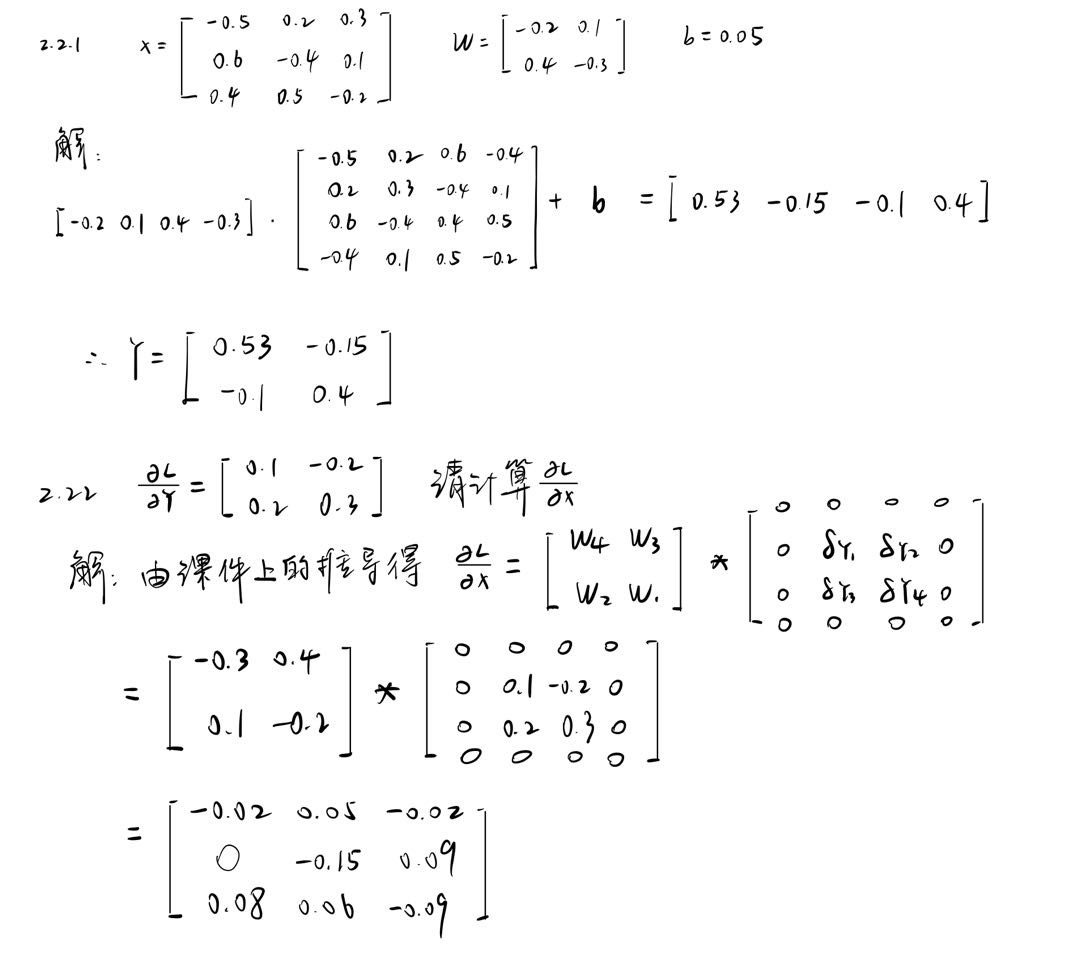 2.2.1 x = [ -0.5 0.2 0.3 W = [ -0.2 0.1 b = 0.05
0.6 -0.4 0.1 0.4 -0.3 ]
0.4 0.5 -0.2 ]
解:
[-0.2 0.1 0.4 -0.3] · [ -0.5 0.2 0.6 -0.4
0.2 0.3 -0.4 0.1
0.6 -0.4 0.4 0.5
-0.4 0.1 0.5 -0.2 ] + b = [ 0.53 -0.15 -0.1 0.4 ]
∴ Y = [ 0.53 -0.15
-0.1 0.4 ]
2.22 ∂L/∂Y = [ 0.1 -0.2 请计算 ∂L/∂x
0.2 0.3 ]
解: 由课件上的推导得 ∂L/∂x = [ W4 W3
W2 W1 ] * [ 0 0 0 0
0 δY1 δY2 0
0 δY3 δY4 0
0 0 0 0 ]
= [ -0.3 0.4
0.1 -0.2 ] * [ 0 0 0 0
0 0.1 -0.2 0
0 0.2 0.3 0
0 0 0 0 ]
= [ -0.02 0.05 -0.02
0 -0.15 0.09
0.08 0.06 -0.09 ]